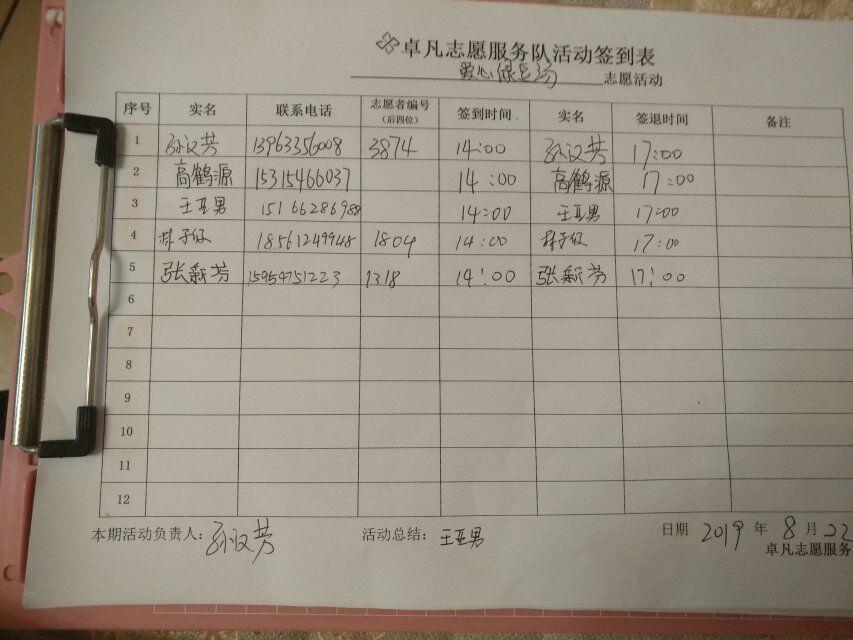 卓凡志愿服务队活动签到表
爱心绿豆汤 志愿活动
序号 实名 联系电话 志愿者编号(后四位) 签到时间 实名 签退时间 备注
1 孙汉芳 13963356008 3874 14:00 孙汉芳 17:00
2 高鹤源 15315466037 14:00 高鹤源 17:00
3 王亚男 15166286988 14:00 王亚男 17:00
4 18561249948 1804 14:00 17:00
5 张新芳 15954751223 1318 14:00 张新芳 17:00
6
7
8
9
10
11
12
本期活动负责人: 孙汉芳 活动总结: 王亚男 日期 2019 年 8 月 22
卓凡志愿服务